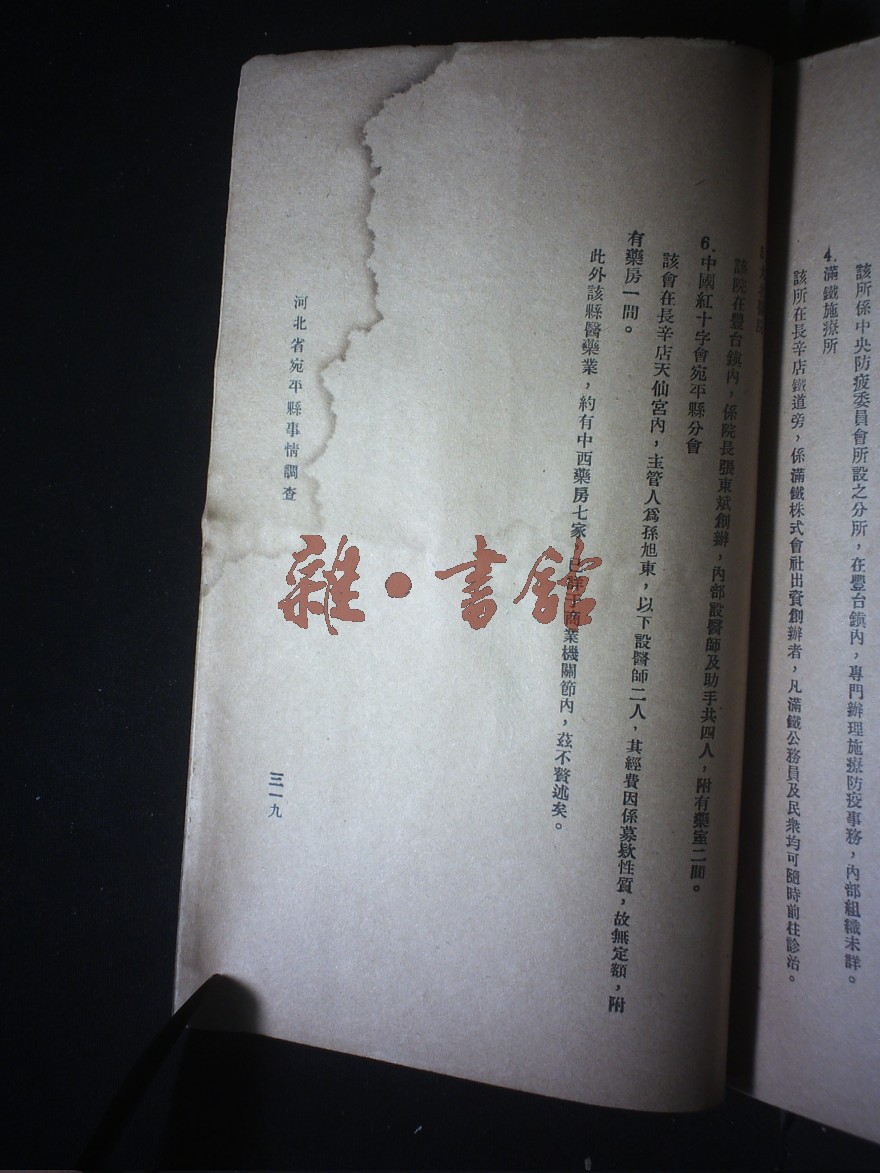 該所係中央防疫委員會所設之分所，在豐台鎮內，專門辦理施療防疫事務，內部組織未詳。
4.滿鐵施療所
該所在長辛店鐵道旁，係滿鐵株式會社出資創辦者，凡滿鐵公務員及民衆均可隨時前往診治。
該院在豐台鎮內，係院長張東斌創辦，內部設醫師及助手共四人，附有藥室二間。
6.中國紅十字會宛平縣分會
該會在長辛店天仙宮內，主管人爲孫旭東，以下設醫師二人，其經費因係募欵性質，故無定額，附
有藥房一間。
此外該縣醫藥業，約有中西藥房七家，已詳于商業機關節內，茲不贅述矣。
河北省宛平縣事情調查
三一九
雜·書館